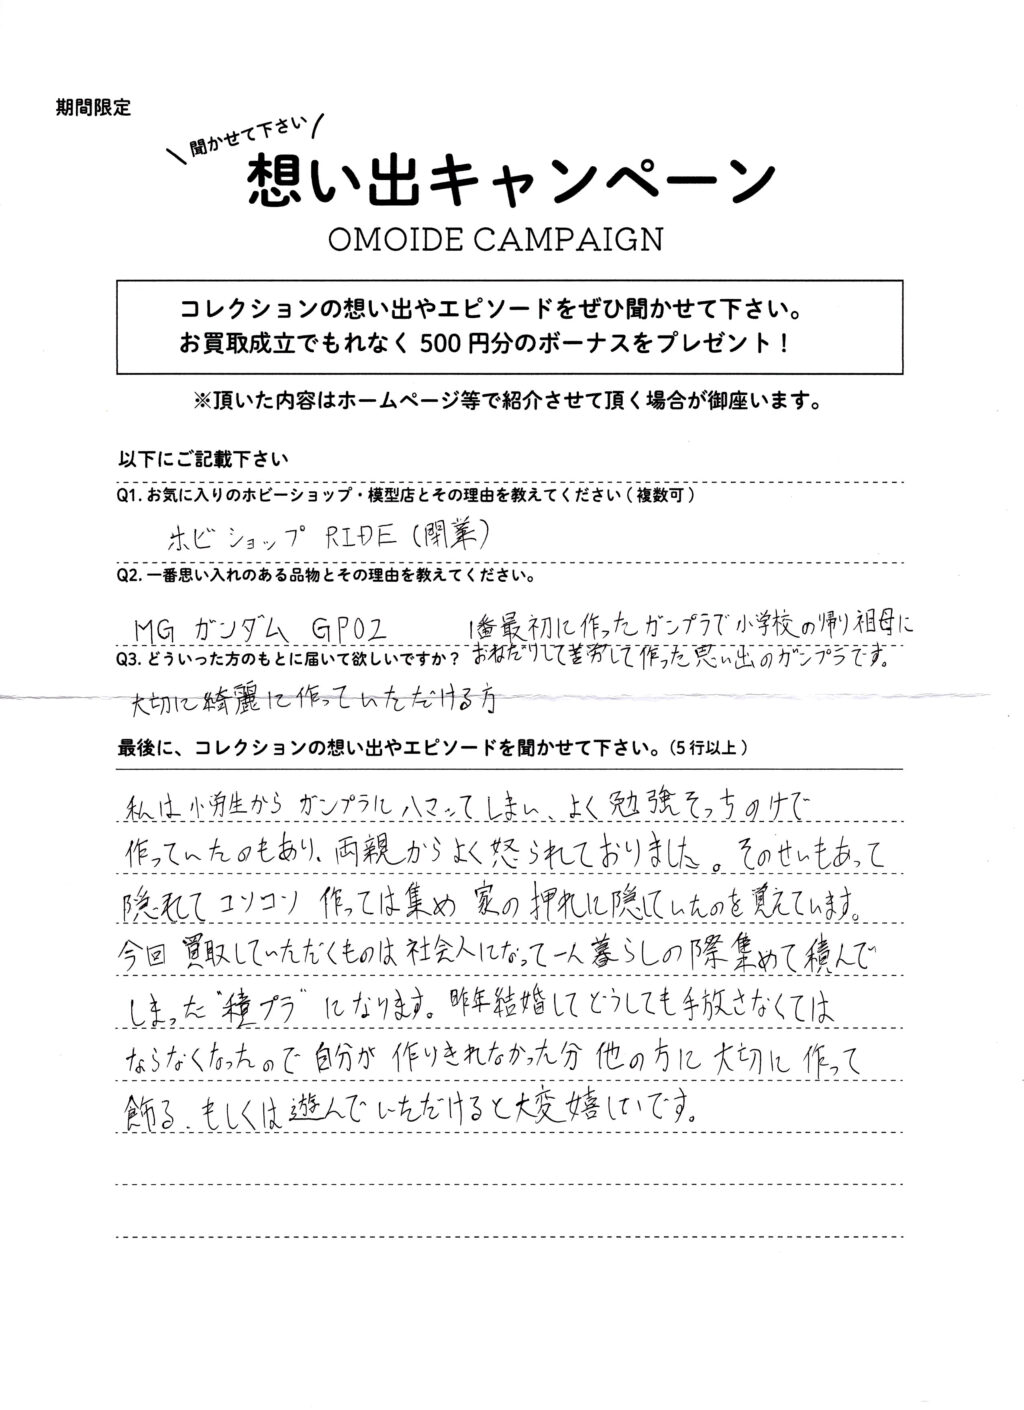 期間限定
聞かせて下さい
想い出キャンペーン
OMOIDE CAMPAIGN
コレクションの想い出やエピソードをぜひ聞かせて下さい。
お買取成立でもれなく 500 円分のボーナスをプレゼント！
※頂いた内容はホームページ等で紹介させて頂く場合が御座います。
以下にご記載下さい
Q1. お気に入りのホビーショップ・模型店とその理由を教えてください ( 複数可 )
ホビショップ RIDE (閉業)
Q2. 一番思い入れのある品物とその理由を教えてください。
MG ガンダム GP02 1番最初に作ったガンプラで小学校の帰り祖母に
おねだりして苦労して作った思い出のガンプラです。
Q3. どういった方のもとに届いて欲しいですか？
大切に綺麗に作っていただける方
最後に、コレクションの想い出やエピソードを聞かせて下さい。(5 行以上)
私は小学生からガンプラにハマってしまい、よく勉強そっちのけで
作っていたのもあり、両親からよく怒られておりました。そのせいもあって
隠れてコソコソ作っては集め家の押入に隠していたのを覚えています。
今回買取していただくものは社会人になって一人暮らしの際集めて積んで
しまった"積プラ"になります。昨年結婚してどうしても手放さなくては
ならなくなったので自分が作りきれなかった分他の方に大切に作って
飾る、もしくは遊んでいただけると大変嬉しいです。